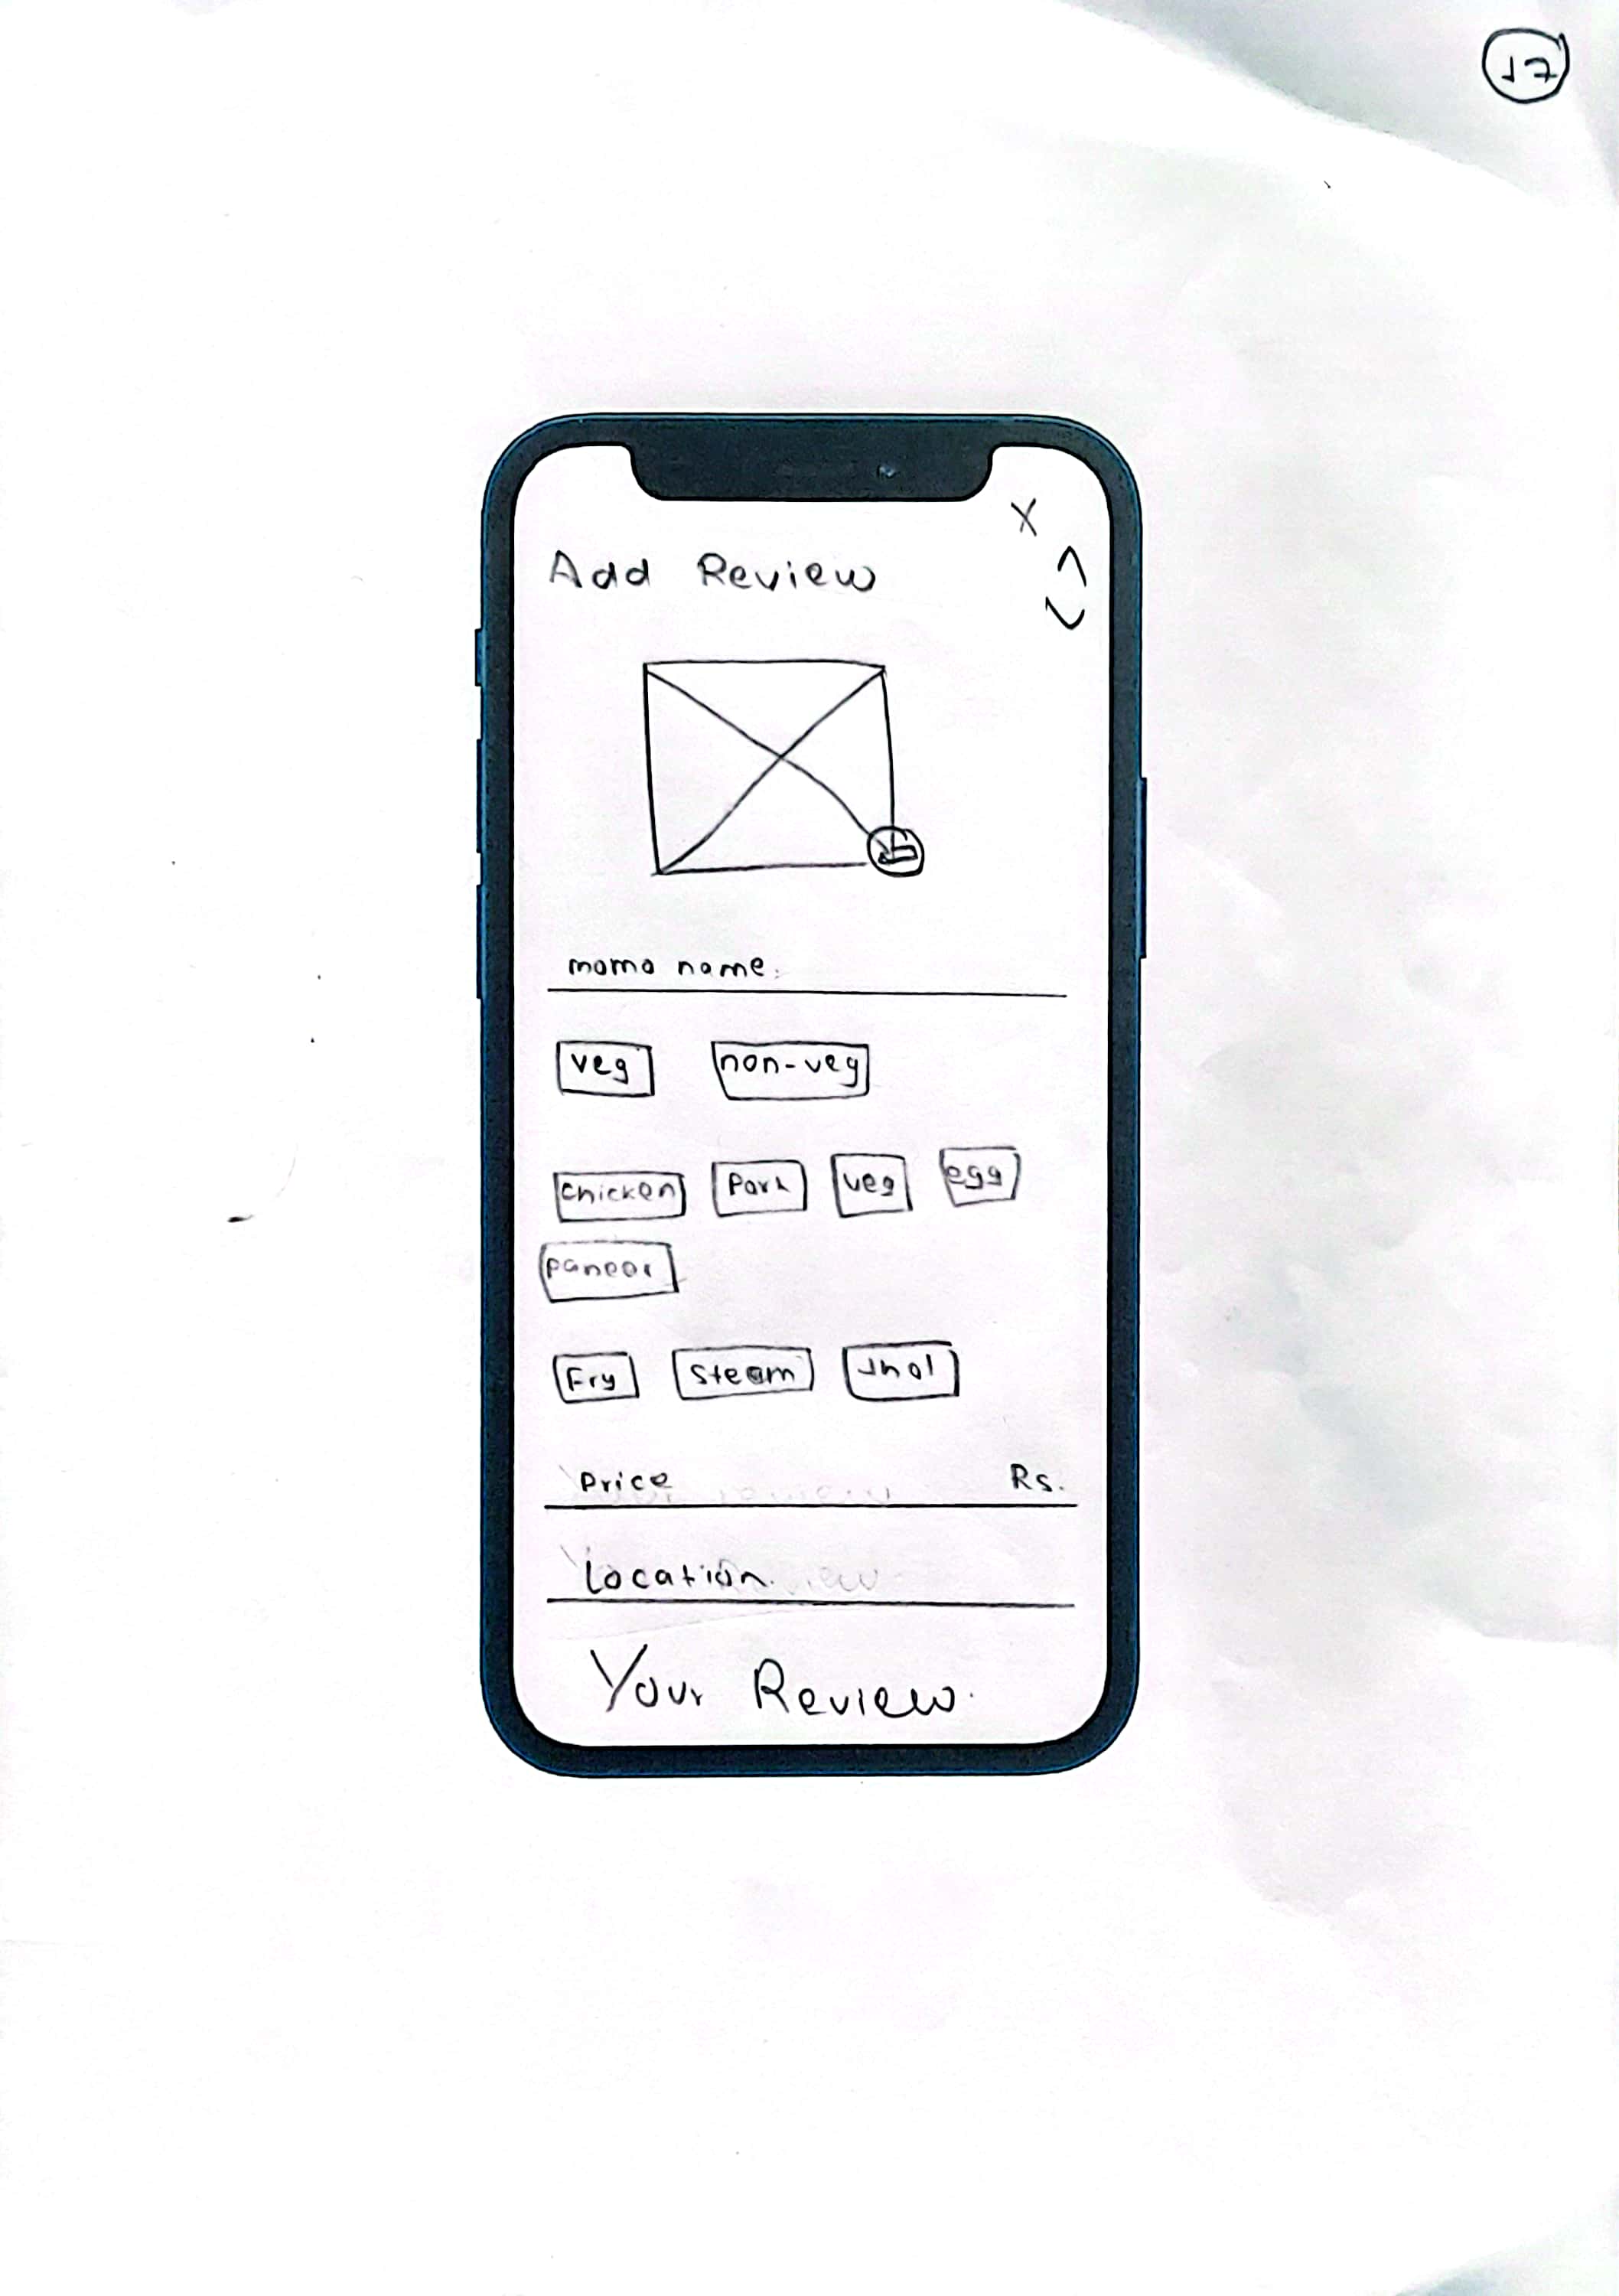 17
X
Add Review
momo name.
veg non-veg
chicken Pork veg egg
paneer
Fry Steam Jhol
Price Rs.
Location.
Your Review.